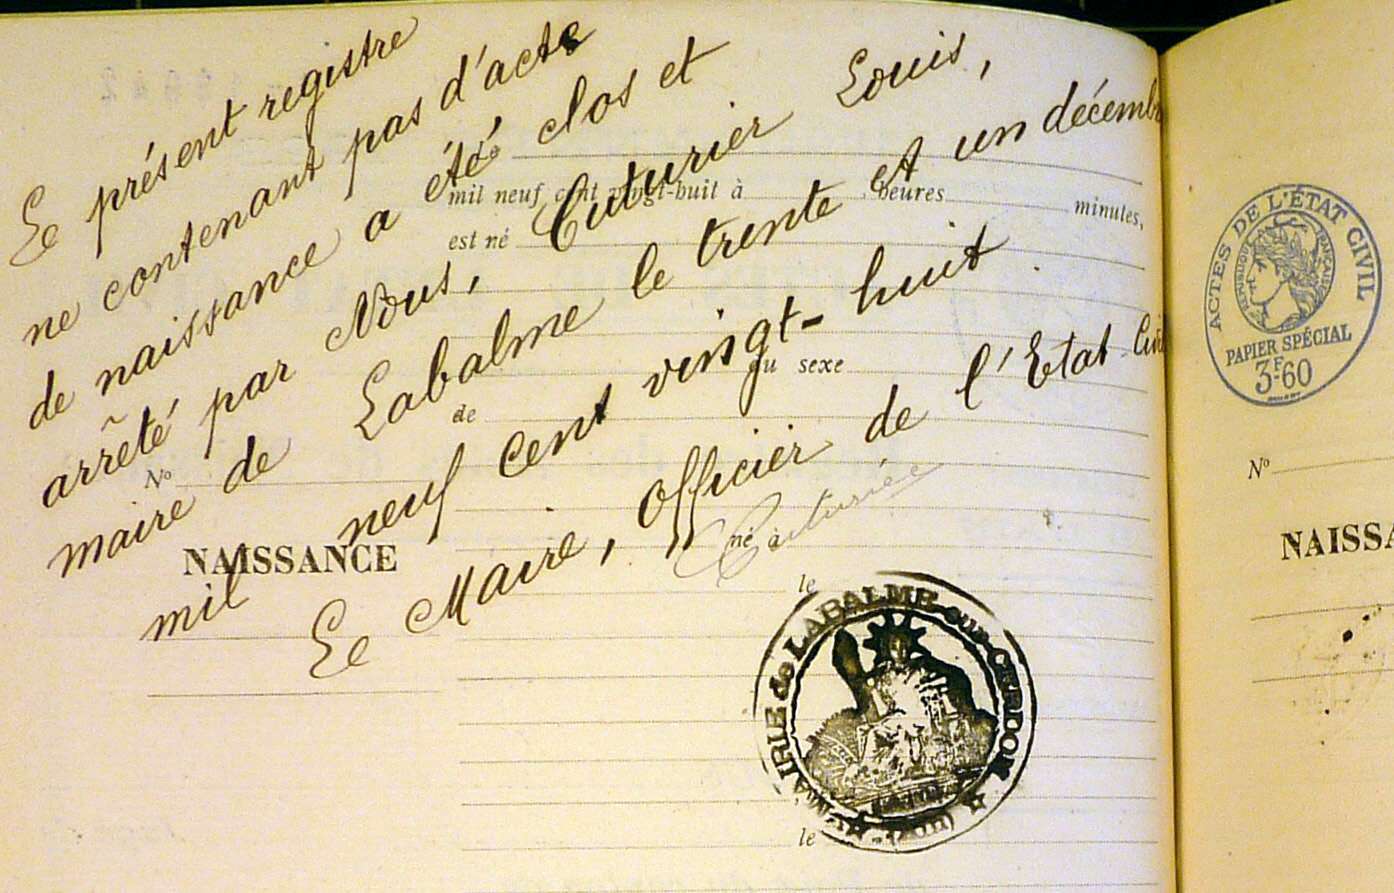 Le présent registre
ne contenant pas d'acte
de naissance a été clos et
arrêté par Nous, Cuturier Louis,
maire de Labalme le trente et un décemb
mil neuf cent vingt-huit.
Le Maire, Officier de l'Etat Civil
Cuturier
mil neuf cent vingt-huit à heures minutes,
est né
du sexe
de
N°
NAISSANCE
né à
le
MAIRIE de LABALME sur CERDON
(Ain)
le
ACTES DE L'ÉTAT CIVIL
RÉPUBLIQUE FRANÇAISE
PAPIER SPÉCIAL
3F.60
N°
NAISSA